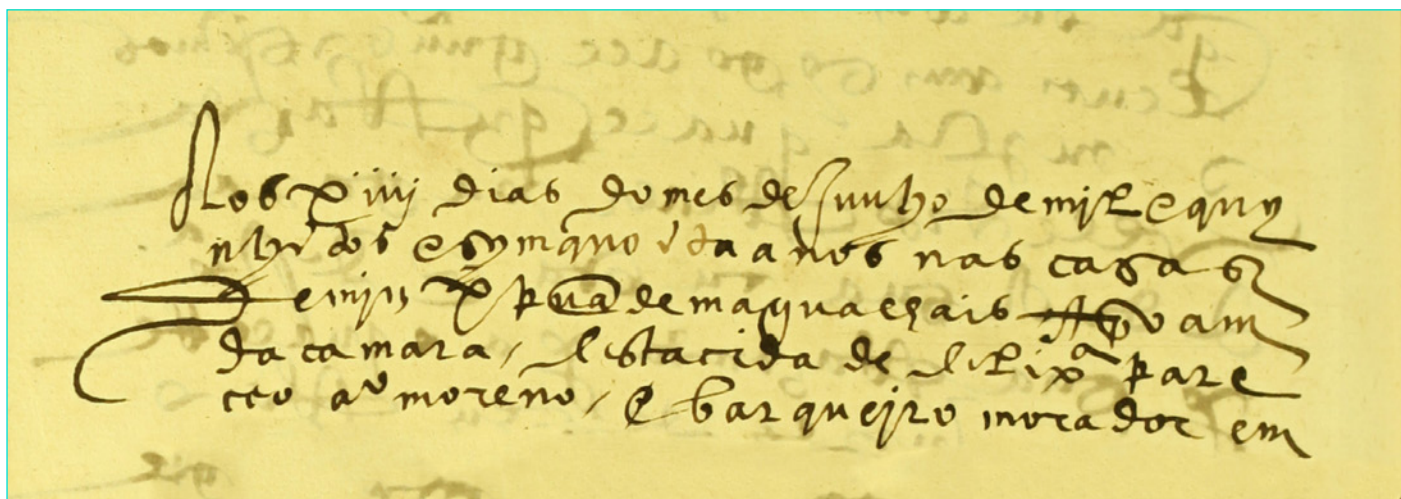 Aos xiiij dias do mes de Junho de mjl e quy
nhẽtos e symquoẽta anos nas casas
de mjm xpouã de maqualhais sprvam
da camara / desta cidade de lixª pare
ceo aº moreno / e barquejro morador em